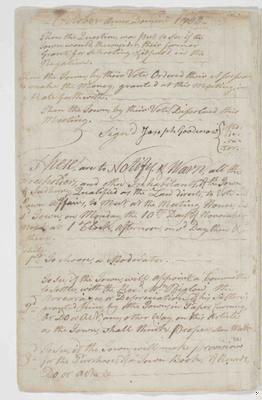 October Anno Domini 1780.
Then the Question was Put to See if the
Town would their former
Grant for Schooling & it past in the
Negative.
Then the Town by their Vote Ordered their Assessors
to make the Money, granted at this Meeting in
Then the Town by their Vote Dissolved this
Meeting.
Signed Joseph Goodenow
Mo
de
ra
tor
These are to Notify & Warn all the
Freeholders and other Inhabitants of the Town
of Sudbury Qualified as the Law directs to Vote in
Town Affairs, to Meet at the Meeting House in
Sd Town on Monday the 10th Day of November
next at 1 Clock afternoon, and Day then &
there
1st To choose a Moderator.
To See if the Town will appoint a Committee
to Settle with the Revd Mr Bigelow the
or Depreciation of his Sallery
or Do or Act any other Way on this Article
as the Town shall think Proper when Met
3d To See if the Town will make provision
for the Purchase of a Town Book of Records
Do or act &c